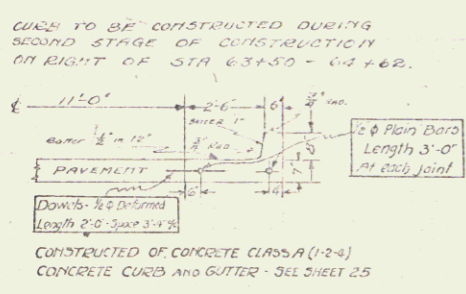 CURB TO BE CONSTRUCTED DURING
SECOND STAGE OF CONSTRUCTION
ON RIGHT OF STA 63+50 - 64+62.
11'-0"
2'-6"
6"
RAD.
BATTER 1"
Batter 1/2" in 12"
RAD
1/2 ⌀ Plain Bars
Length 3'-0"
At each joint
PAVEMENT
7"
6"
4"
Dowels - 1/2 ⌀ Deformed
Length 2'-0" - Space 3'-4" %
CONSTRUCTED OF CONCRETE CLASS A (1-2-4)
CONCRETE CURB AND GUTTER - SEE SHEET 25